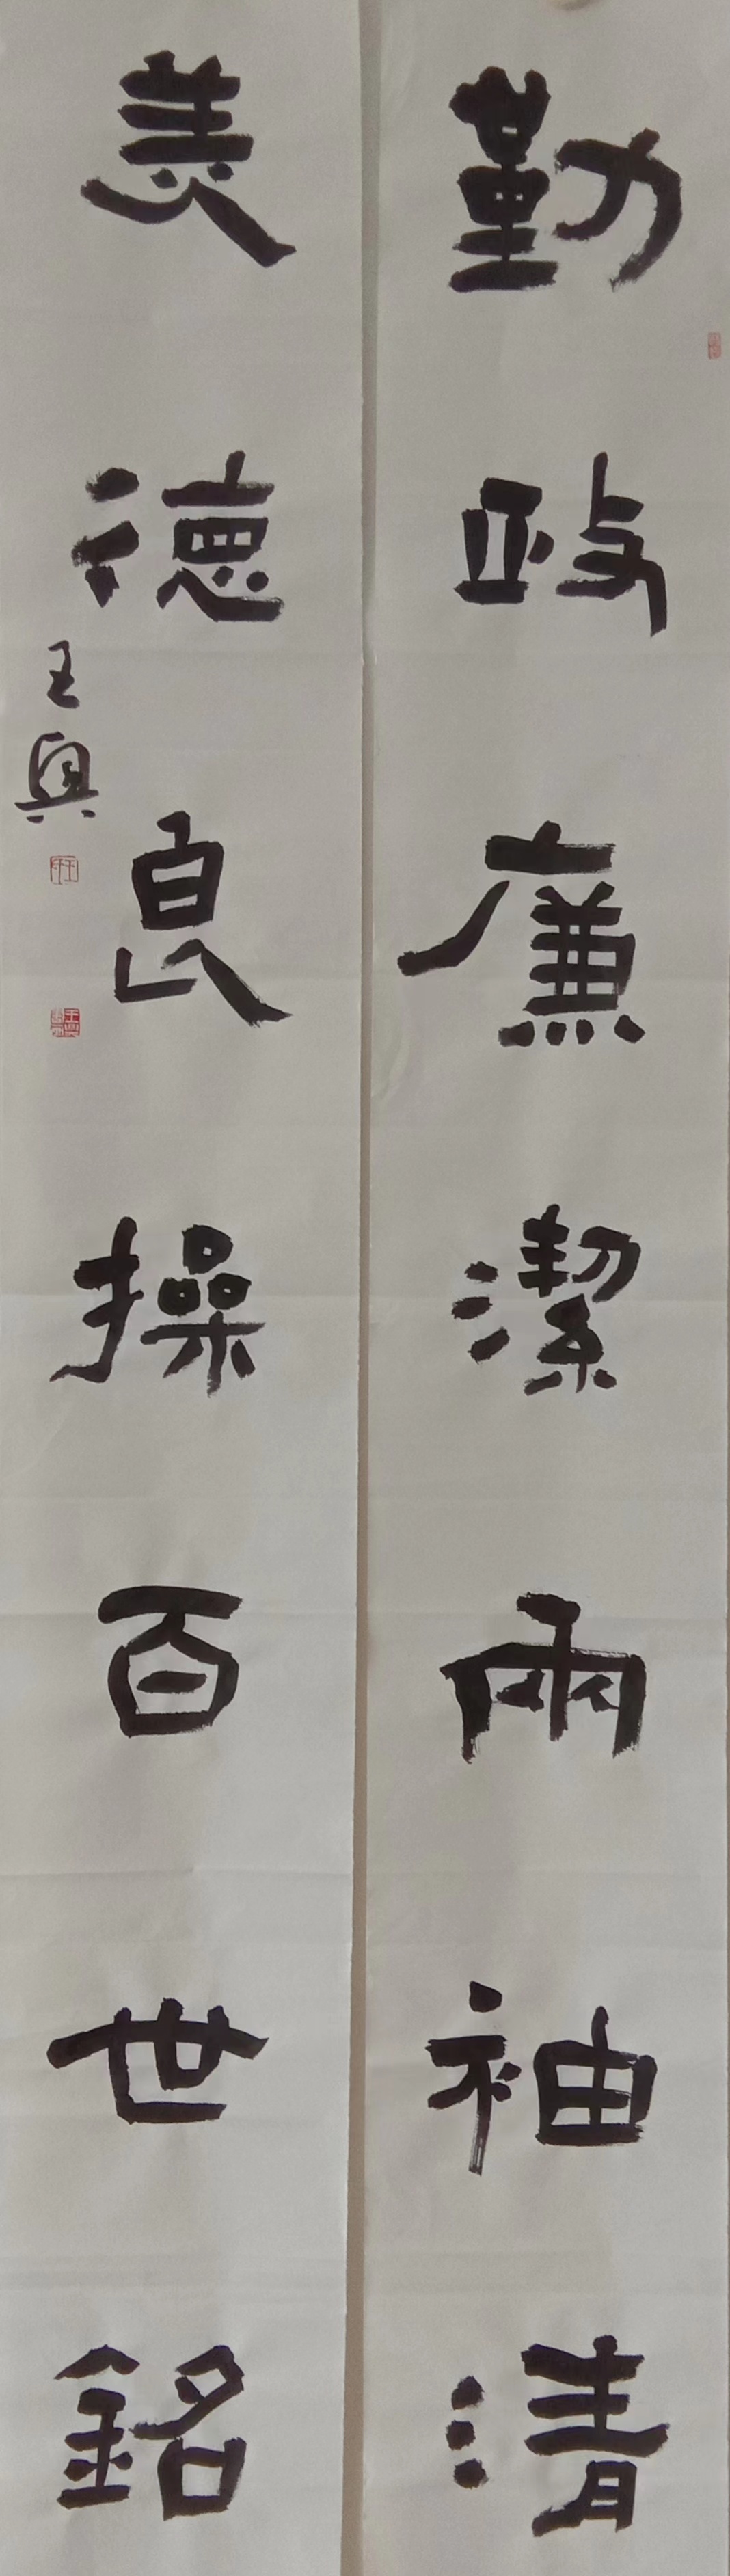 勤政廉潔兩袖清
美德良操百世銘
王興